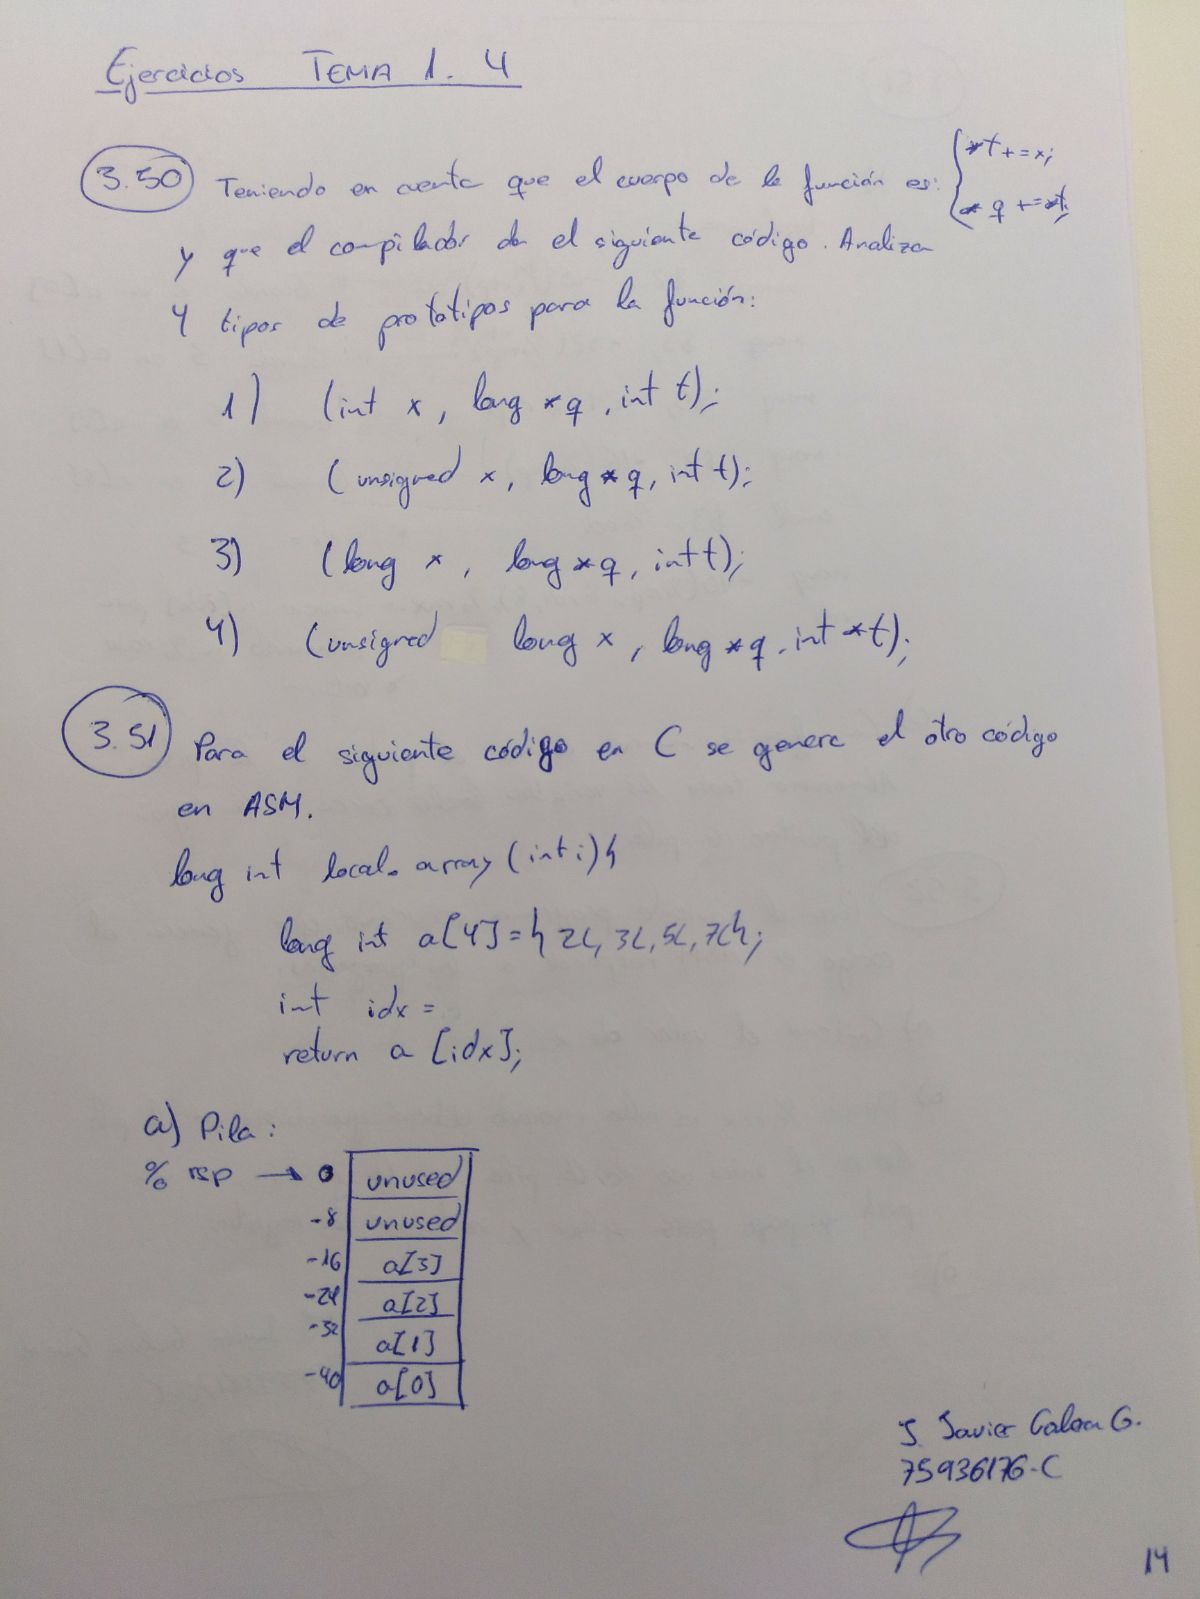 Ejercicios TEMA 1. 4
3.50 Teniendo en cuenta que el cuerpo de la función es: { *t += x;
*q += *t;
y que el compilador da el siguiente código. Analiza
4 tipos de prototipos para la función:
1) (int x, long *q, int t);
2) (unsigned x, long *q, int t);
3) (long x, long *q, int t);
4) (unsigned long x, long *q, int *t);
3.51 Para el siguiente código en C se genera el otro código
en ASM.
long int local_array (int i) {
long int a[4] = { 2L, 3L, 5L, 7L};
int idx =
return a [idx];
a) Pila:
% rsp → 0 unused
-8 unused
-16 a[3]
-24 a[2]
-32 a[1]
-40 a[0]
J. Javier G.
75936176-C
14